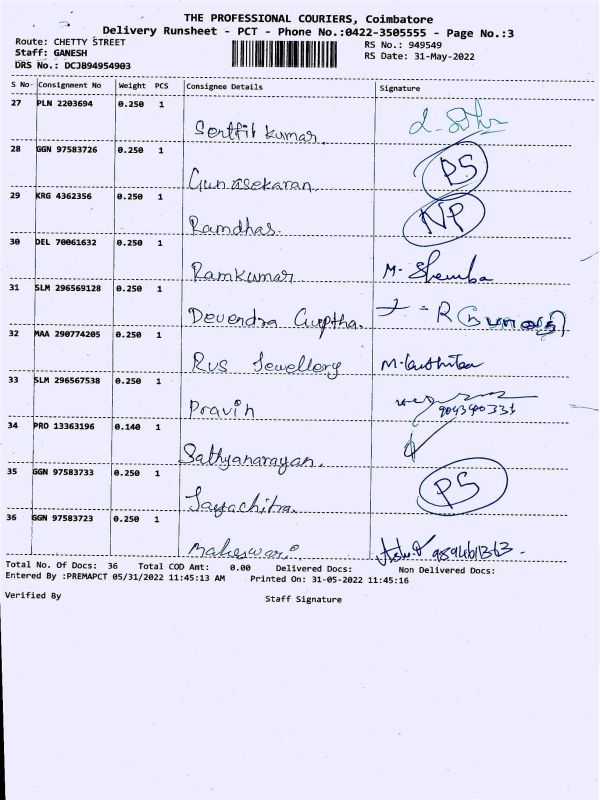 THE PROFESSIONAL COURIERS, Coimbatore
Delivery Runsheet - PCT - Phone No.:0422-3505555 - Page No.:3
Route: CHETTY STREET
RS No.: 949549
Staff: GANESH
RS Date: 31-May-2022
DRS No.: DCJB94954903
S No Consignment No Weight PCS Consignee Details Signature
27 PLN 2203694 0.250 1
Senthil kumar.
28 GGN 97583726 0.250 1
Gunasekaran PS
29 KRG 4362356 0.250 1
Ramdhas. NP
30 DEL 70061632 0.250 1
Ramkumar M-
31 SLM 296569128 0.250 1
Devendra Guptha.
32 MAA 290774205 0.250 1
Rvs Jewellery
33 SLM 296567538 0.250 1
Pravin
34 PRO 13363196 0.140 1
Sathyanarayan.
35 GGN 97583733 0.250 1
Jayachitra. PS
36 GGN 97583723 0.250 1
Maheswari
Total No. Of Docs: 36 Total COD Amt: 0.00 Delivered Docs: Non Delivered Docs:
Entered By :PREMAPCT 05/31/2022 11:45:13 AM Printed On: 31-05-2022 11:45:16
Verified By
Staff Signature